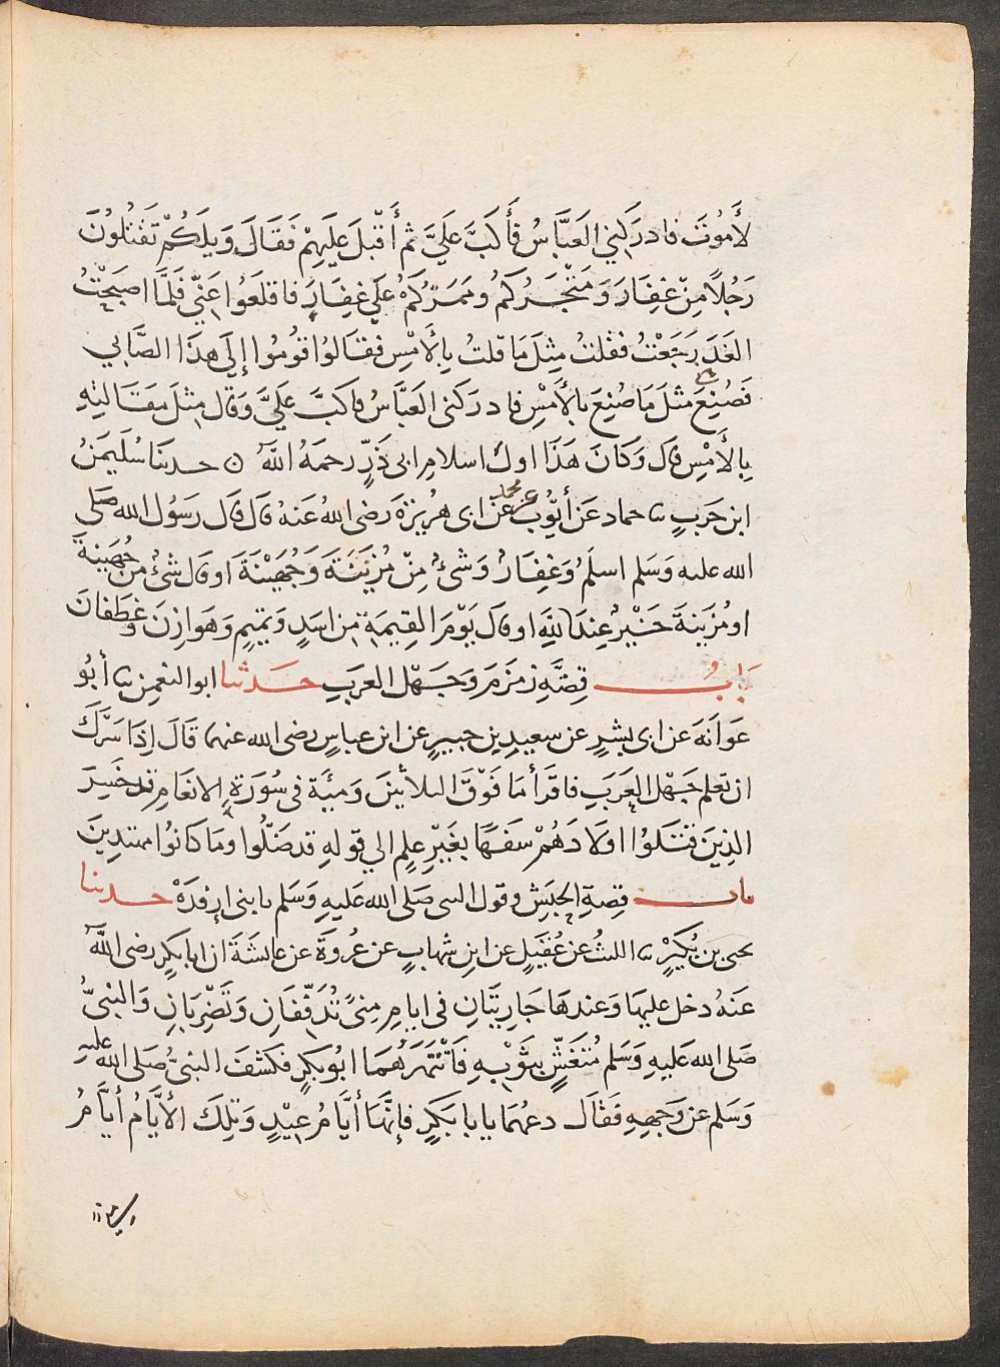 لأَمُوتَ فادرَكَني العَبَّاسُ فَأَكَبَّ عَلَيَّ ثم أَقْبَلَ عَلَيهِمْ فَقَالَ وَيلَكُمْ تَقْتُلُونَ
رَجُلًا مِنْ غِفَارَ وَمَتْجَرُكُمْ ومَمَرّكُمْ عَلَي غِفَارَ فاقلَعُوا عَنِّي فَلَمَّا اصبَحْتُ
الغَدَ رَجَعْتُ فقلتُ مِثلَ مَا قلتُ بِالأَمْسِ فقَالوُا قوُمُوا إِلَي هذَا الصَّابي
فَصُنِعَ مثلَ مَا صُنِعَ بالأَمْسِ فادرَكني العَبَّاسُ فاكَبَّ عَلَيَّ وَقال مِثلَ مَقَالتِهِ
بِالأَمْسِ قال وَكانَ هَذَا اول اسلامِ ابى ذَرٍّ رحمَهُ اللهُ ٥ حدثنا سُلَيمَنُ
ابن حَربٍ ثنا حماد عَن أَيُّوبَ عن محمد عَن ابى هُرَيرَةَ رَضى الله عَنهُ قال قال رَسُول الله صَلى
الله عليه وَسَلم اسلَمُ وَغِفَارُ وَشَيءٌ مِنْ مُزَيْنَةَ وَجُهَيْنَةَ او قال شيءٌ من جُهَينةَ
او مُزَينةَ خَيْرٌ عِندَ اللهِ او قال يَوْمَ القِيمَةِ مِن اسَدٍ وَتميمٍ وَهَوازِنَ وَغَطَفَانَ
بَابُ قِصَّةِ زمزَمَ وَجَهْل العَربِ حَدثنا ابو النعمن ثنا أبوُ
عَوَانَةَ عَن ابى بشرٍ عن سعيدِ بن جبيرٍ عن ابن عباسٍ رضى الله عنهما قَالَ إِذَا سَرَّكَ
ان تعلم جَهْلَ العَرَبِ فاقرأ مَا فَوْقَ الثلاثينَ وَمِئَةٍ فى سُورَةِ الانعَامِ قد خَسِرَ
الذينَ قتَلوُا اولَادَهُمْ سَفَهًا بِغَيْرِ عِلمٍ الي قولهِ قد ضَلُّوا وما كانوُا مهتدِينَ
باب قصةِ الحبَشِ وقول النبى صَلى الله عَليهِ وَسَلم يا بنى ارفدَةَ حدثنا
يحيى بن بُكَيْرٍ ثنا الليثُ عن عُقَيلٍ عن ابنِ شهابٍ عن عُروَةَ عن عائشَةَ ان ابا بكرٍ رضى اللهُ
عَنهُ دخل عليهَا وَعندهَا جَاريَتَانِ في ايامِ مِنىً تُدَفِّفَانِ وَتَضْرِبَانِ وَالنبيُّ
صَلى الله عَليهِ وَسَلم مُتَغَشٍّ بِثَوْبِهِ فَانْتَهَرَهُمَا ابُو بَكرٍ فكَشفَ النبيُّ صَلى الله عليه
وَسَلم عن وَجههِ فَقَال دعهُمَا يا با بَكرٍ فإِنَّهَا أَيَّامُ عِيْدٍ وَتِلكَ الأَيَّامُ أَيَّامُ